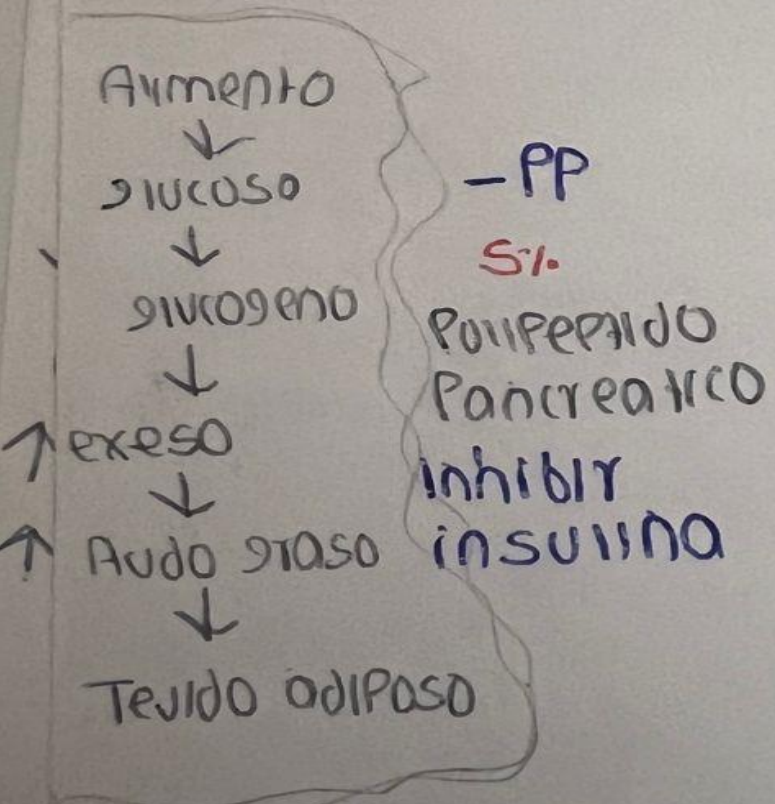 Aumento
↓
glucoso
↓
glucogeno
↓
↑ exeso
↓
↑ Audo graso
↓
Tejido adiposo
- PP
5%
Polipeptido
Pancreatico
inhibir
insulina